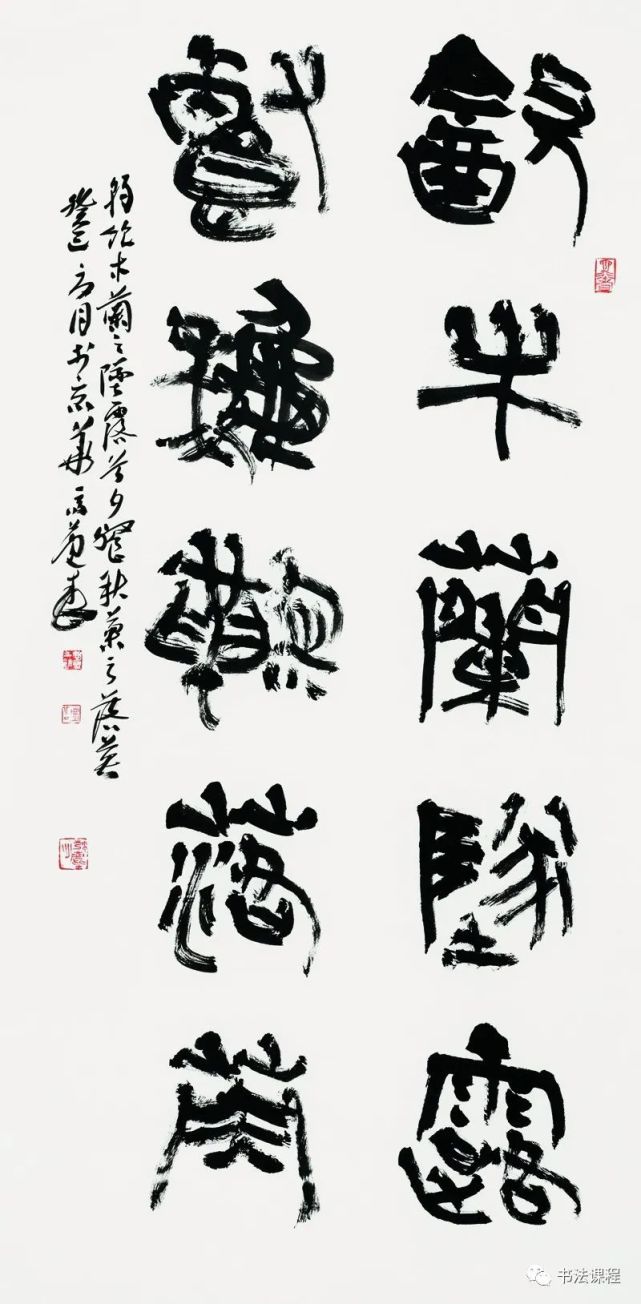 飲木蘭墜露
餐秋菊落英
朝飲木蘭之墜露兮夕餐秋菊之落英
癸巳月於京華言恭達
书法课程